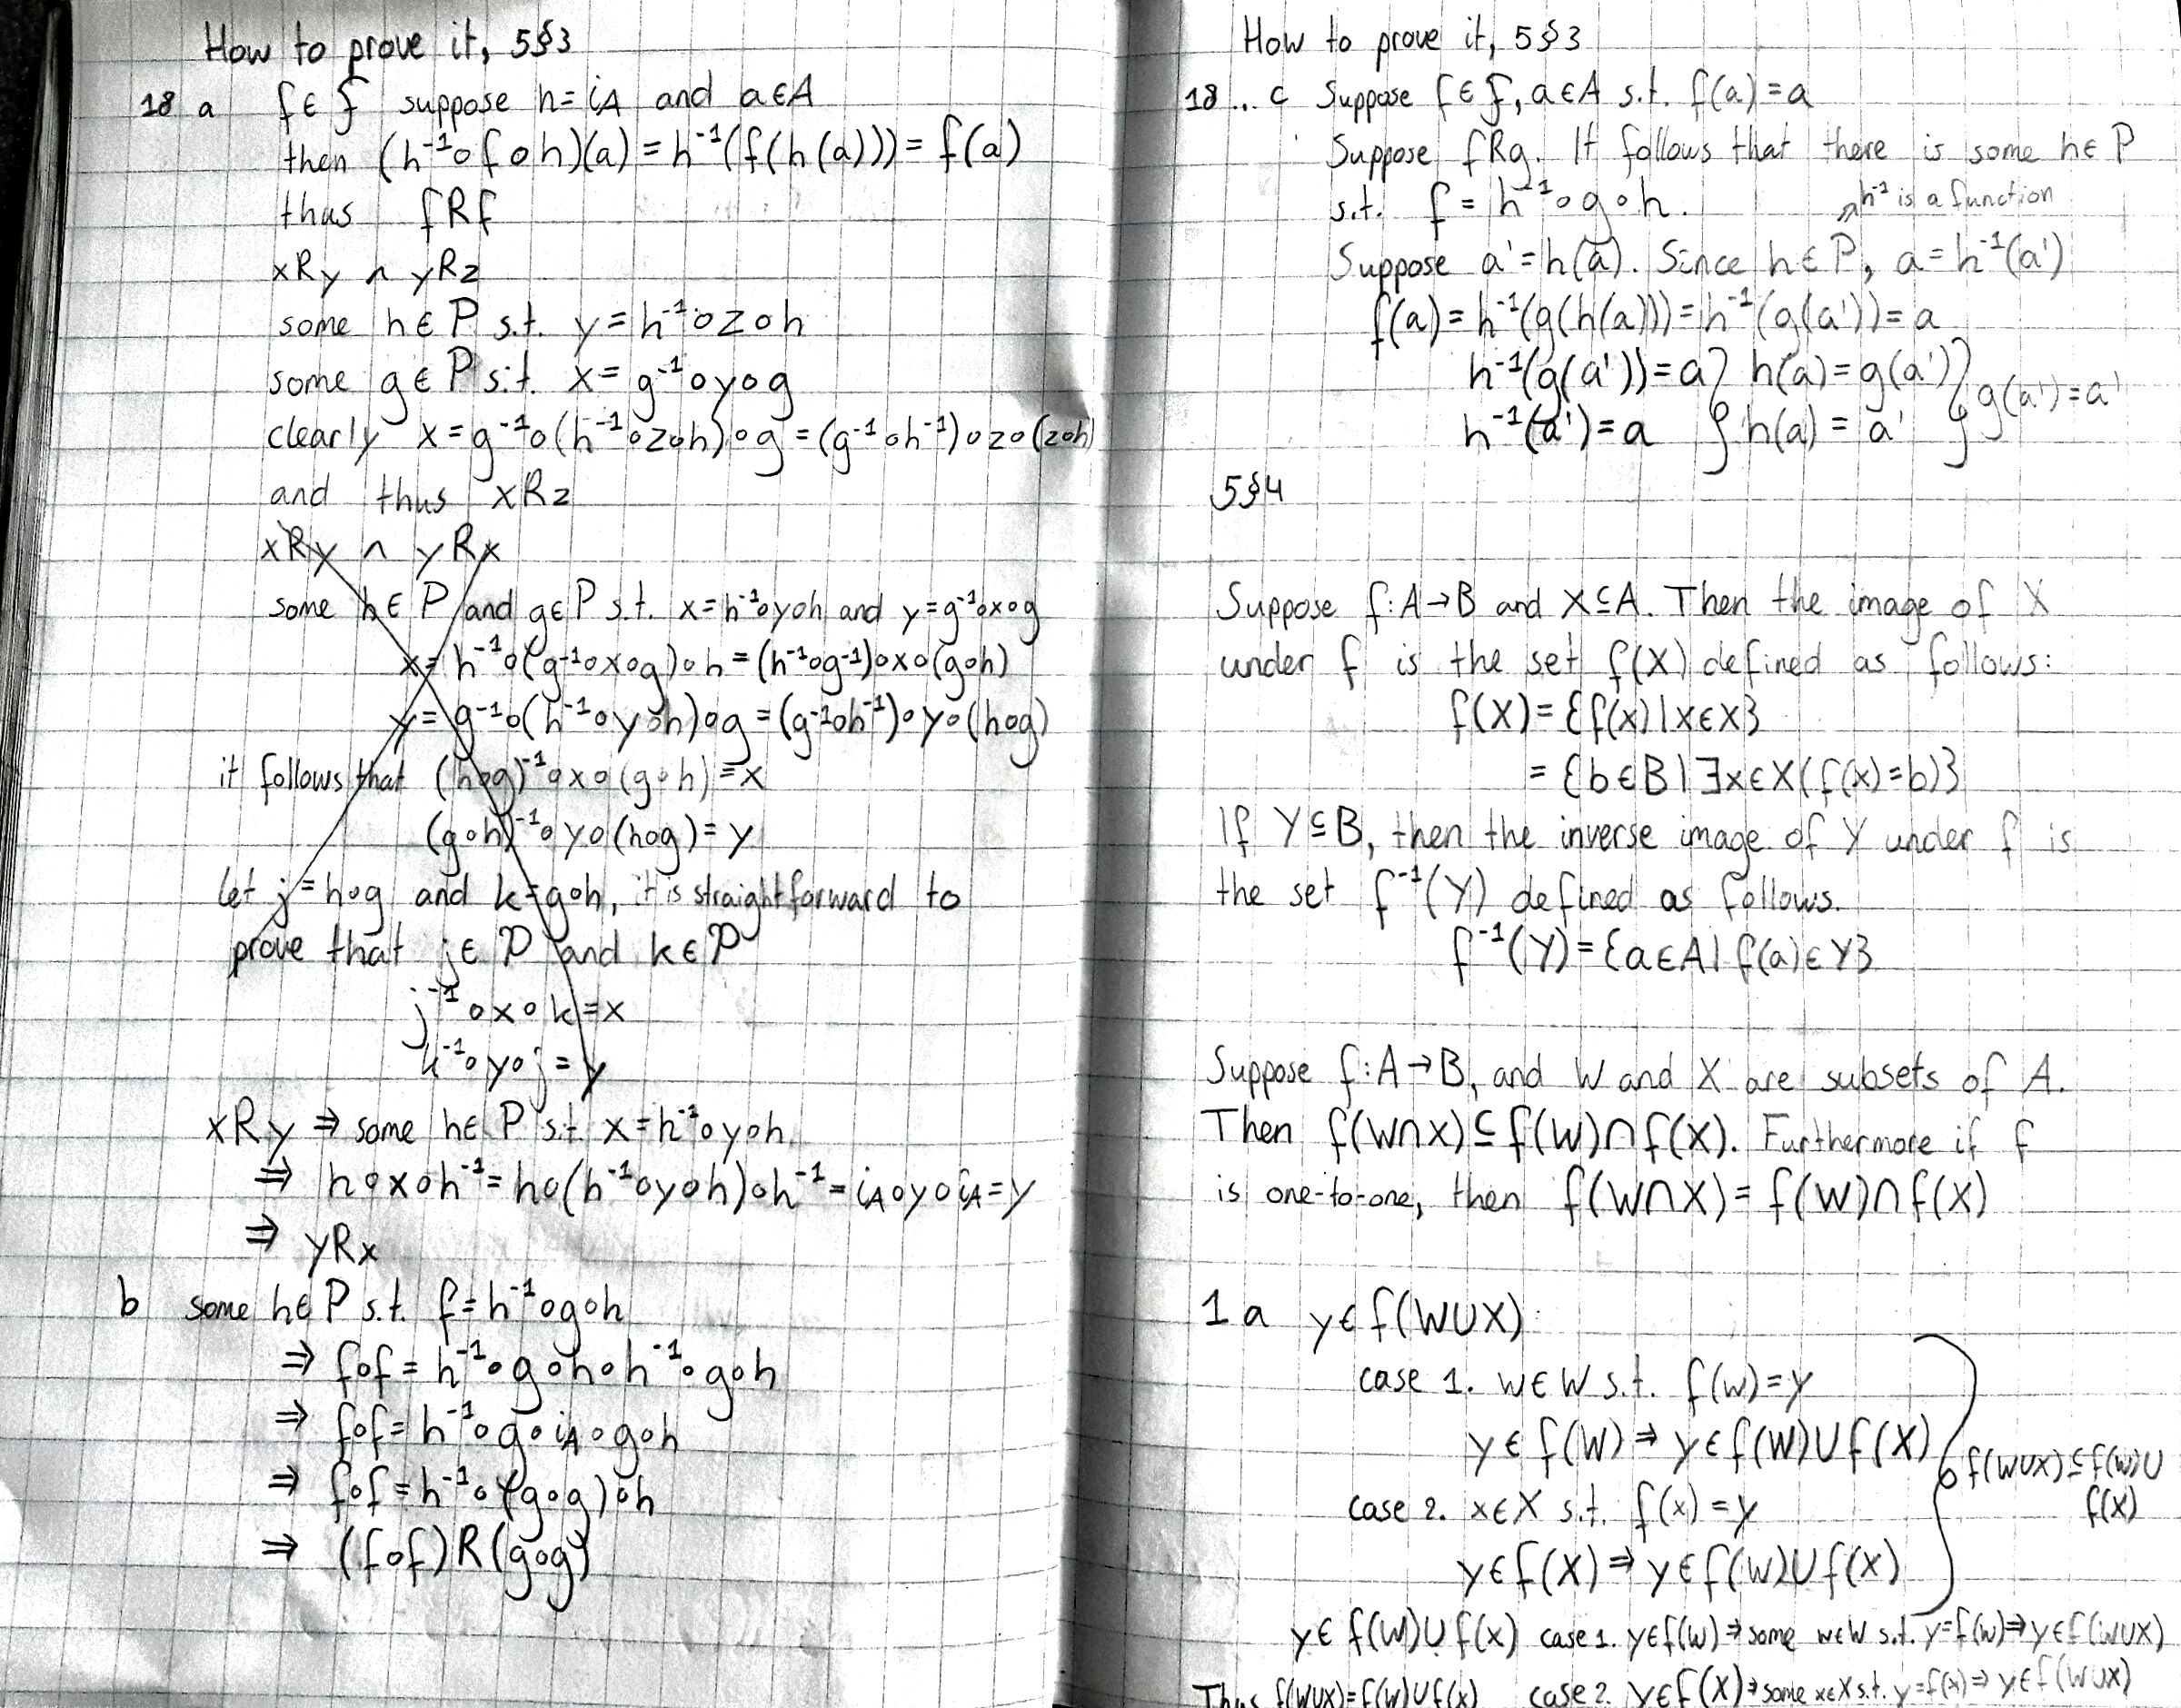 How to prove it, 5§3
18 a f ∈ F suppose h = i_A and a ∈ A
then (h⁻¹∘f∘h)(a) = h⁻¹(f(h(a))) = f(a)
thus fRf
xRy ∧ yRz
some h ∈ P s.t. y = h⁻¹∘z∘h
some g ∈ P s.t. x = g⁻¹∘y∘g
clearly x = g⁻¹∘(h⁻¹∘z∘h)∘g = (g⁻¹∘h⁻¹)∘z∘(z∘h)
and thus xRz
xRy ∧ yRx
some h ∈ P and g ∈ P s.t. x = h⁻¹∘y∘h and y = g⁻¹∘x∘g
x = h⁻¹∘(g⁻¹∘x∘g)∘h = (h⁻¹∘g⁻¹)∘x∘(g∘h)
y = g⁻¹∘(h⁻¹∘y∘h)∘g = (g⁻¹∘h⁻¹)∘y∘(h∘g)
it follows that (h∘g)⁻¹∘x∘(g∘h) = x
(g∘h)⁻¹∘y∘(h∘g) = y
let j = h∘g and k = g∘h, it is straightforward to
prove that j ∈ P and k ∈ P
j⁻¹∘x∘k = x
k⁻¹∘y∘j = y
xRy ⇒ some h ∈ P s.t. x = h⁻¹∘y∘h
⇒ h∘x∘h⁻¹ = h∘(h⁻¹∘y∘h)∘h⁻¹ = i_A∘y∘i_A = y
⇒ yRx
b some h ∈ P s.t. f = h⁻¹∘g∘h
⇒ f∘f = h⁻¹∘g∘h∘h⁻¹∘g∘h
⇒ f∘f = h⁻¹∘g∘i_A∘g∘h
⇒ f∘f = h⁻¹∘(g∘g)∘h
⇒ (f∘f)R(g∘g)
How to prove it, 5§3
18 ... c Suppose f ∈ F, a ∈ A s.t. f(a) = a
Suppose fRg. It follows that there is some h ∈ P
s.t. f = h⁻¹∘g∘h. ↗ h⁻¹ is a function
Suppose a' = h(a). Since h ∈ P, a = h⁻¹(a')
f(a) = h⁻¹(g(h(a))) = h⁻¹(g(a')) = a
h⁻¹(g(a')) = a } h(a) = g(a') } g(a') = a'
h⁻¹(a') = a } h(a) = a' }
5§4
Suppose f: A → B and X ⊆ A. Then the image of X
under f is the set f(X) defined as follows:
f(X) = {f(x) | x ∈ X}
= {b ∈ B | ∃x ∈ X(f(x) = b)}
If Y ⊆ B, then the inverse image of Y under f is
the set f⁻¹(Y) defined as follows.
f⁻¹(Y) = {a ∈ A | f(a) ∈ Y}
Suppose f: A → B, and W and X are subsets of A.
Then f(W∩X) ⊆ f(W)∩f(X). Furthermore if f
is one-to-one, then f(W∩X) = f(W)∩f(X)
1 a y ∈ f(W∪X)
case 1. w ∈ W s.t. f(w) = y
y ∈ f(W) ⇒ y ∈ f(W)∪f(X)
case 2. x ∈ X s.t. f(x) = y
y ∈ f(X) ⇒ y ∈ f(W)∪f(X)
f(W∪X) ⊆ f(W)∪
f(X)
y ∈ f(W)∪f(X) case 1. y ∈ f(W) ⇒ some w ∈ W s.t. y = f(w) ⇒ y ∈ f(W∪X)
Thus f(W∪X) = f(W)∪f(X) case 2. y ∈ f(X) ⇒ some x ∈ X s.t. y = f(x) ⇒ y ∈ f(W∪X)